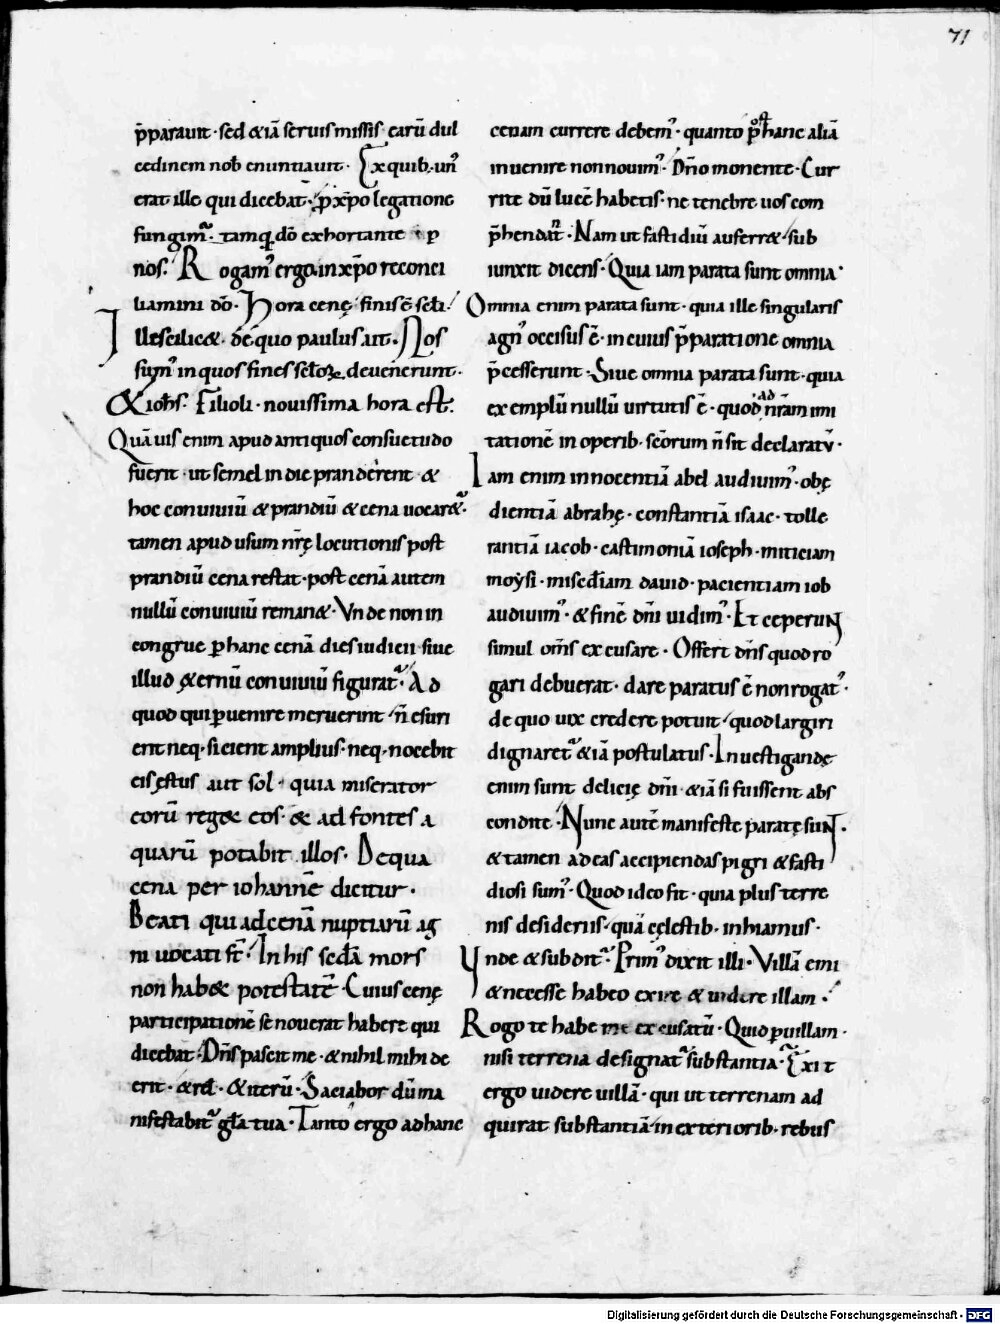 71
p̄parauit · sed &iā seruis missis earū dul
cedinem nob̄ enuntiauit · Ex quib; un᷒
erat ille qui dicebat · p̄ xp̄o legatione
fungim᷒ · tamq̄ dō exhortante p̄
nos · Rogam᷒ ergo in xp̄o reconci
liamini dō · Hora cenę finis ē sc̄li ·
Ille scilic& · de quo paulus ait · Nos
sum᷒ in quos fines sc̄loꝝ deuenerunt ·
& ioh̄s · Filioli · nouissima hora est ·
Quāuis enim apud antiquos consuetudo
fuerit · ut semel in die pranderent · &
hoc conuiuiū & prandiū & cena uocar&ur ·
tamen apud usum nr̄ę locutionis post
prandiū cena restat · post cenā autem
nullū conuiuiū reman& · Vnde non in
congrue p̱ hanc cenā dies iudicii siue
illud ęternū conuiuiū figurat᷑ · Ad
quod qui p̱uenire meruerint · n̄ esuri
ent neq; sicient amplius · neq; nocebit
eis ęstus aut sol · quia miserator
eorū reg& eos · & ad fontes a
quarū potabit illos · De qua
cena per iohannē dicitur ·
Beati qui ad cenā nuptiarū ag
ni uocati st̄ · In his sec̄da mors
non hab& potestatē · Cuius cenę
participationē se nouerat habere qui
dicebat · Dn̄s pascit me · & nihil mihi de
erit · & rl̄ · & iterū · Saciabor dū ma
nifestabit᷑ gl̄a tua · Tanto ergo ad hanc
cenam currere debem᷒ · quanto post hanc aliā
inuenire non nouim᷒ · Dn̄o monente · Cur
rite dū lucē habetis · ne tenebre uos com
p̄hendant · Nam ut fastidiū auferr& · sub
iunxit dicens · Quia iam parata sunt omnia ·
Omnia enim parata sunt · quia ille singularis
agn᷒ occisus ē · in cuius p̄paratione omnia
p̄cesserunt · Siue omnia parata sunt · quia
exemplū nullū uirtutis ē · quod ad nr̄am imi
tationē in operib; sc̄orum n̄ sit declaratū ·
Iam enim innocentiā abel audiuim᷒ · obę
dientiā abrahę · constantiā isaac · tolle
rantiā iacob · castimoniā ioseph · miticiam
moẏsi · misc̄diam dauid · pacientiam iob
audiuim᷒ · & finē dn̄i uidim᷒ · Et ceperunt
simul om̄s excusare · Offert dn̄s quod ro
gari debuerat · dare paratus ē non rogat᷒ ·
de quo uix credere potuit · quod largiri
dignaret᷑ &iā postulatus · Inuestigandę
enim sunt delicię dn̄i · &iā si fuissent abs
condite · Nunc autē manifeste paratę sunt ·
& tamen ad eas accipiendas pigri & fasti
diosi sum᷒ · Quod ideo fit · quia plus terre
nis desideriis · quā cęlestib; inhiamus ·
Vnde & subdit᷑ · Prim᷒ dixit illi · Villā emi
& necesse habeo exire & uidere illam ·
Rogo te habe me excusatū · Quid p̱ uillam ·
nisi terrena designat᷑ substantia · Exit
ergo uidere uillā · qui ut terrenam ad
quirat substantiā · in exteriorib; rebus
Digitalisierung gefördert durch die Deutsche Forschungsgemeinschaft - DFG